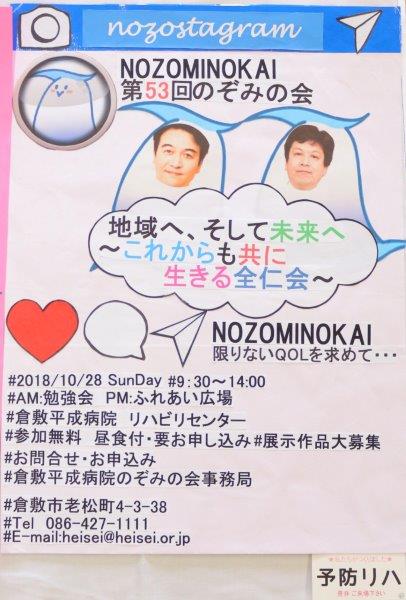 nozostagram
NOZOMINOKAI
第53回のぞみの会
地域へ、そして未来へ
～これからも共に
生きる全仁会～
NOZOMINOKAI
限りないQOLを求めて・・・
#2018/10/28 SunDay #9:30～14:00
#AM:勉強会 PM:ふれあい広場
#倉敷平成病院 リハビリセンター
#参加無料 昼食付・要お申し込み#展示作品大募集
#お問合せ・お申込み
#倉敷平成病院のぞみの会事務局
#倉敷市老松町4-3-38
#Tel 086-427-1111
#E-mail:heisei@heisei.or.jp
★私たちがつくりました★
予防リハ
是非 ご来場下さい